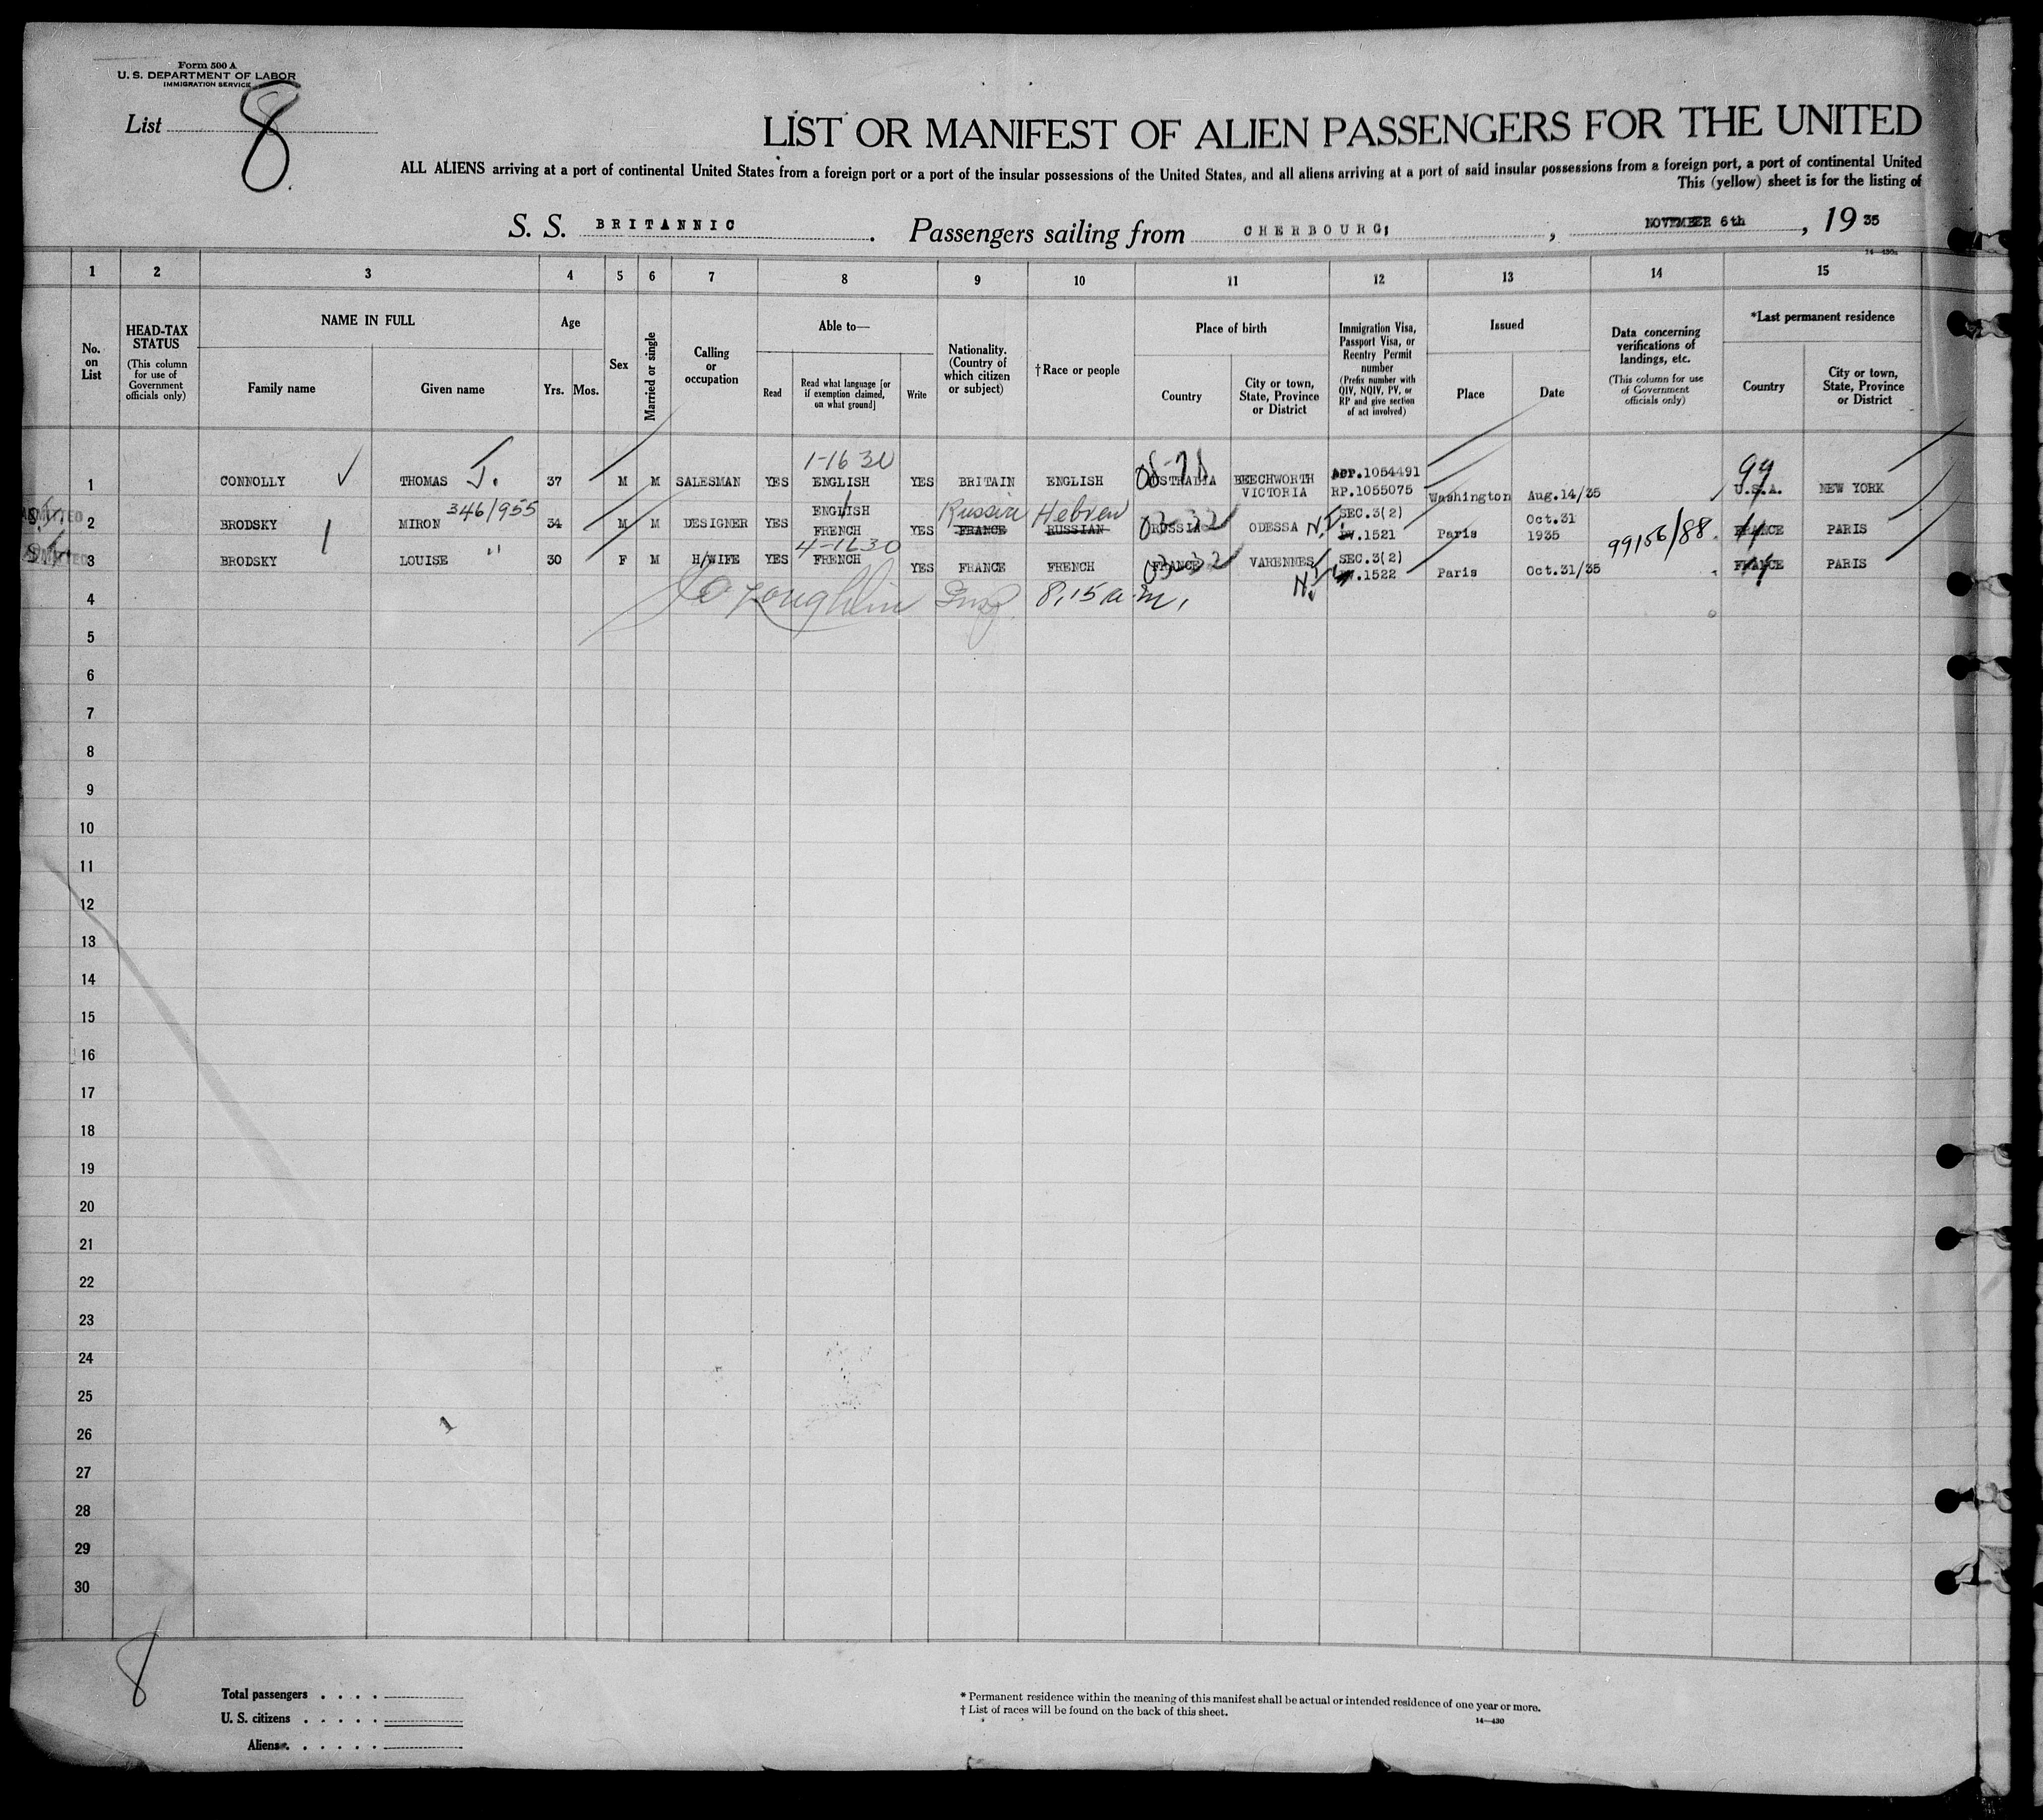 Form 500 A
U. S. DEPARTMENT OF LABOR
IMMIGRATION SERVICE
List 8
LIST OR MANIFEST OF ALIEN PASSENGERS FOR THE UNITED
ALL ALIENS arriving at a port of continental United States from a foreign port or a port of the insular possessions of the United States, and all aliens arriving at a port of said insular possessions from a foreign port, a port of continental United
This (yellow) sheet is for the listing of
S. S. BRITANNIC. Passengers sailing from CHERBOURG, NOVEMBER 6th, 1935
14—430a
1 2 3 4 5 6 7 8 9 10 11 12 13 14 15
No. on List
HEAD-TAX STATUS
(This column for use of Government officials only)
NAME IN FULL
Family name
Given name
Age
Yrs. Mos.
Sex
Married or single
Calling or occupation
Able to—
Read
Read what language [or if exemption claimed, on what ground]
Write
Nationality. (Country of which citizen or subject)
†Race or people
Place of birth
Country
City or town, State, Province or District
Immigration Visa, Passport Visa, or Reentry Permit number
(Prefix number with QIV, NQIV, PV, or RP and give section of act involved)
Issued
Place
Date
Data concerning verifications of landings, etc.
(This column for use of Government officials only)
*Last permanent residence
Country
City or town, State, Province or District
1-16 30
99
1 CONNOLLY THOMAS J. 37 M M SALESMAN YES ENGLISH YES BRITAIN ENGLISH AUSTRALIA BEECHWORTH VICTORIA 1054491 RP.1055075 Washington Aug.14/35 U.S.A. NEW YORK
346/955
Russia Hebrew
ADMITTED
2 BRODSKY MIRON 34 M M DESIGNER YES ENGLISH FRENCH YES FRANCE RUSSIAN RUSSIA ODESSA N.I. SEC.3(2) .1521 Paris Oct.31 1935 99156/88 FRANCE PARIS
4-1630
ADMITTED
3 BRODSKY LOUISE " 30 F M H/WIFE YES FRENCH YES FRANCE FRENCH FRANCE VARENNES N.I. SEC.3(2) .1522 Paris Oct.31/35 FRANCE PARIS
4 Insp. 8,15 a.m.
5
6
7
8
9
10
11
12
13
14
15
16
17
18
19
20
21
22
23
24
25
26
27
28
29
30
8
Total passengers . . . .
U. S. citizens . . . . .
Aliens . . . . . .
* Permanent residence within the meaning of this manifest shall be actual or intended residence of one year or more.
† List of races will be found on the back of this sheet.
14—430